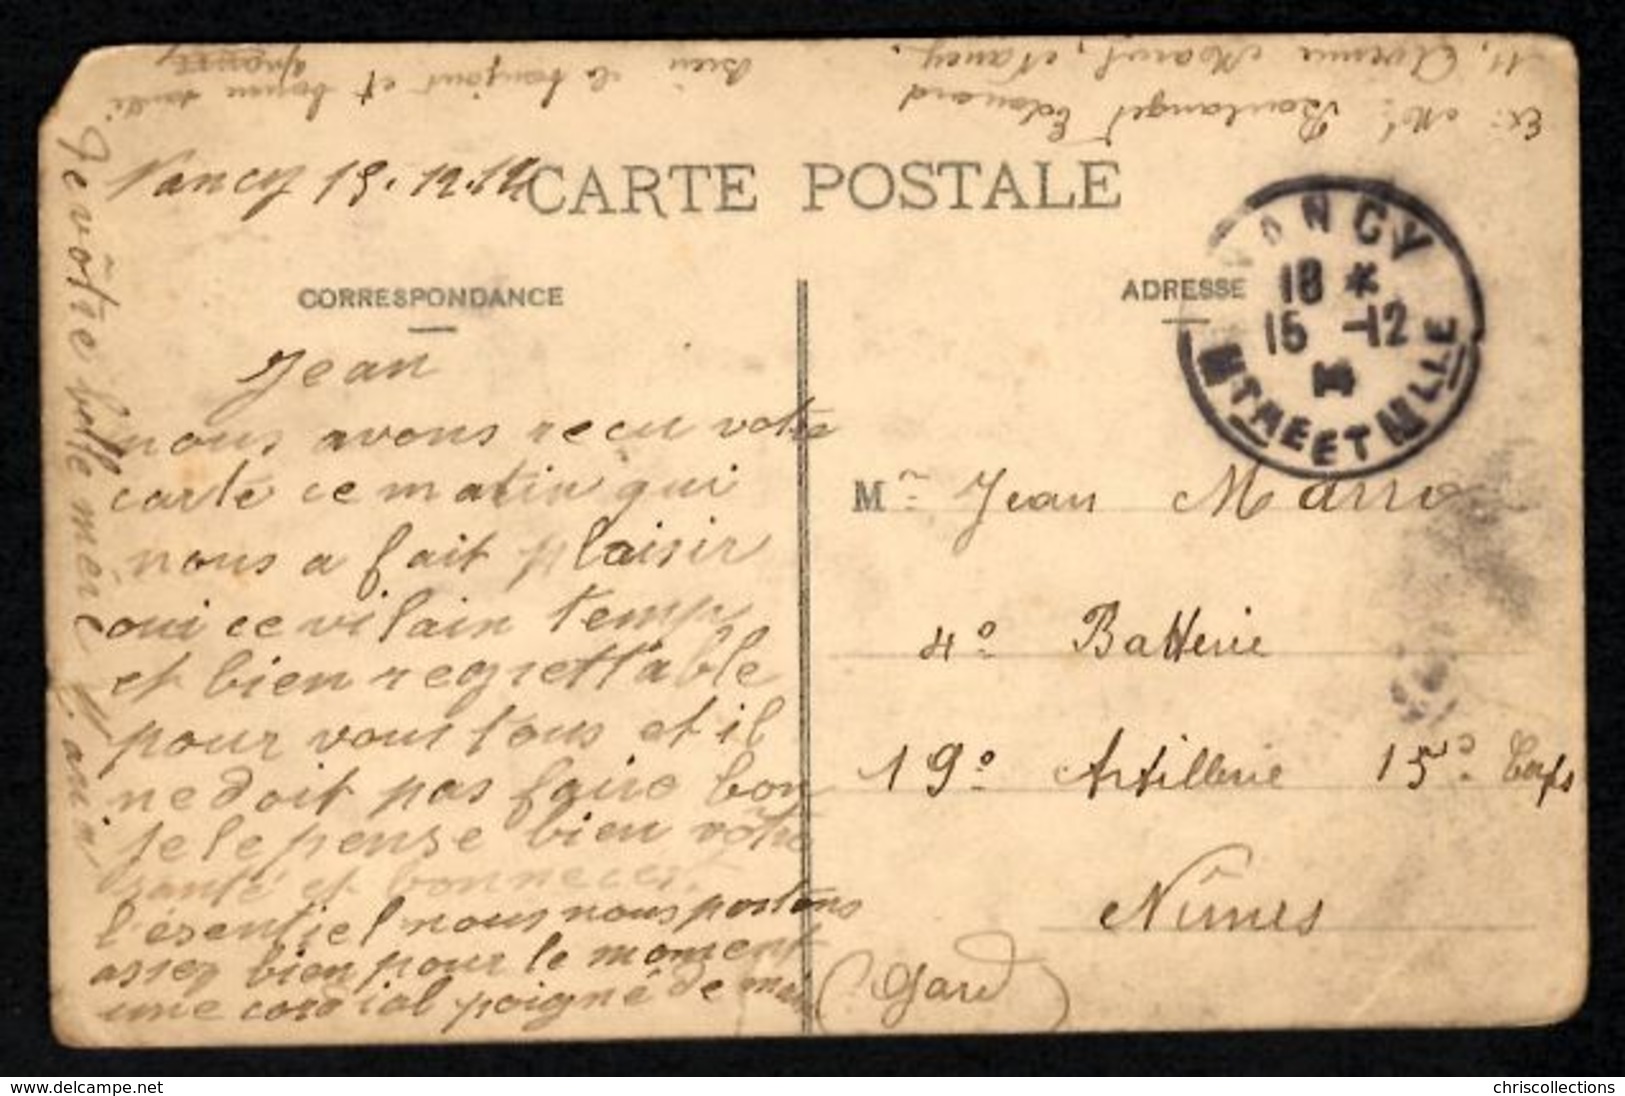 Ex: Mr Boulanget Edouard
11, Avenue Marcel, Nancy.
bien le bonjour et bonne santé
CARTE POSTALE
Nancy 15.12.14
CORRESPONDANCE
ADRESSE
NANCY
18 *
15 -12
MTHE ET MLLE
Jean
nous avons reçu votre
carte ce matin qui
nous a fait plaisir
oui ce vilain temps
et bien regrettable
pour vous tous et il
ne doit pas faire bon
je le pense bien vôtre
santé et bonne ces
l'ésentiel nous nous portons
assez bien pour le moment
une cordial poigné de main
Je vôtre belle mère
Mr Jean
4e Batterie
19e Artillerie 15e Corps
Nîmes
(Gard)
www.delcampe.net
chriscollections